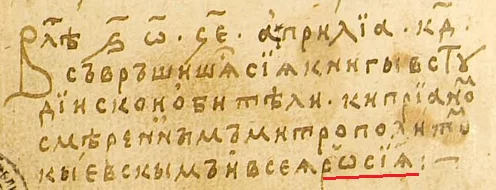 В лѣ҃ ҂ѕ҃ ѡ҃ · ч҃е · априлїа · к҃д ·
съврꙿшишѧ сїѧ книгы в стꙋ
дїискои ѻбители · кипрїаном
смѣреннымъ митрополитом
кыевскымъ и всеѧ рѡсїѧ : ~